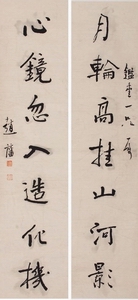 月輪高挂山河影
心鏡忽入造化機